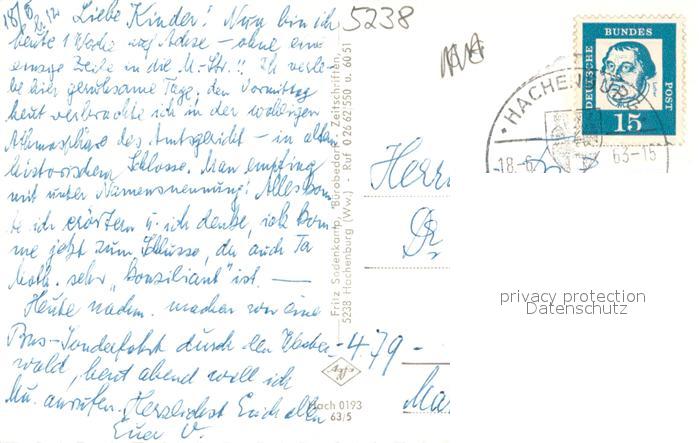 18/6. Liebe Kinder! Nun bin ich
heute 1 Woche auf Achse – ohne eine
einzige Zeile in die M.-Str.!! Ich verle-
be hier geruhsame Tage, den Vormittag
heut verbrachte ich in der
Atmosphäre des Amtsgericht – in altem
historischem Schlosse. Man empfing
mit unter Namensnennung! Alles konn
te ich erörtern u. ich denke, ich kom
me jetzt zum Schlusse, da auch
sehr "Konziliant" ist. —
Heute nachm. machen wir eine
Bus-Sonderfahrt durch den Wester-
wald, heut abend will ich
Mu. anrufen. Herzlichst Euch allen
Euer V.
5238
Fritz Sodenkamp, Bürobedarf Zeitschriften
5238 Hachenburg (Ww.) - Ruf 0 26 62/550 u. 60 51
Agfa
Hach 0193
63/5
DEUTSCHE
BUNDES
POST
15
HACHENBURG
18.-6. 63-15
Herrn
Dr.
-479-
Ma
privacy protection
Datenschutz